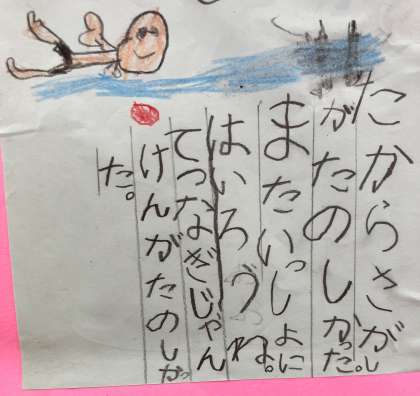 たからさがし
がたのしかった。
またいっしょに
はいろうね。
てつなぎじゃん
けんがたのしかっ
た。